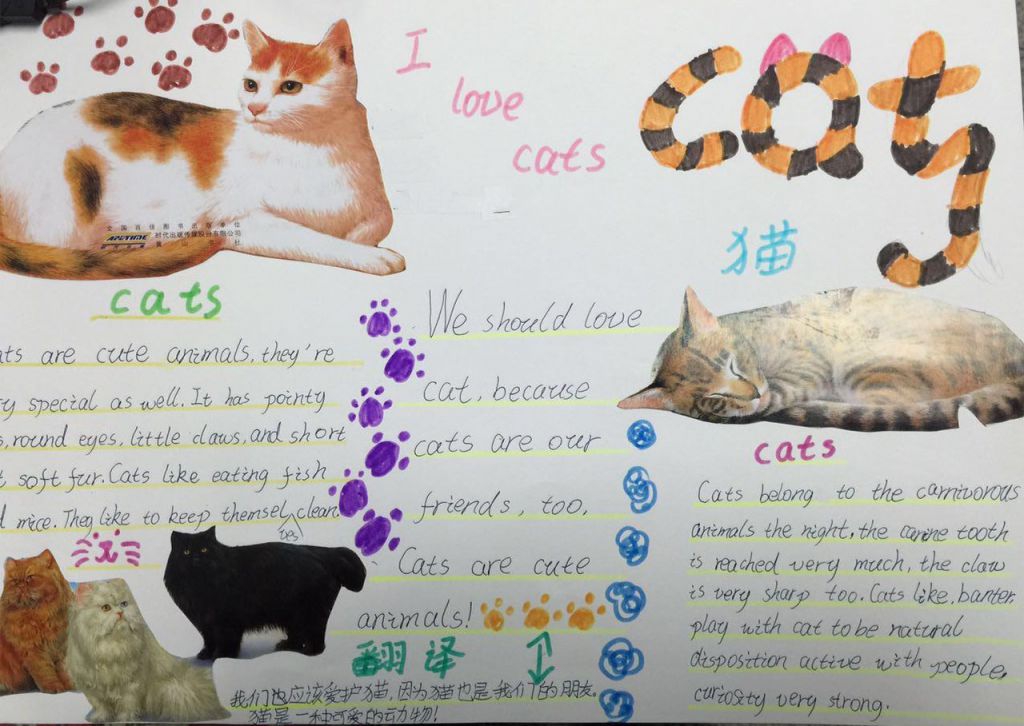 I
love
cats
cats
猫
全国百佳图书出版单位
APUTIME 时代出版传媒股份有限公司
cats
ats are cute animals, they're
ry special as well. It has pointy
s, round eyes, little claws, and short
t soft fur. Cats like eating fish
d mice. They like to keep themselves clean.
We should love
cat, because
cats are our
friends, too.
Cats are cute
animals!
翻译
我们也应该爱护猫,因为猫也是我们的朋友。
猫是一种可爱的动物!
cats
Cats belong to the carnivorous
animals the night, the canine tooth
is reached very much, the claw
is very sharp too. Cats like, banter
play with cat to be natural
disposition active with people,
curiosity very strong.